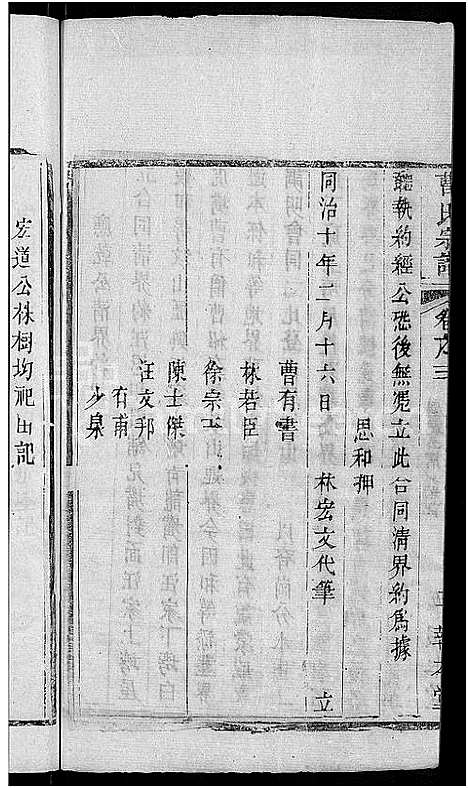 曹氏宗譜
卷之三
聽執約經公恐後無凴立此合同清界約爲據
思和押
同治十年二月十六日 林宏文代筆 立
曹有書
林若臣
徐宗玉
陳士傑
汪文邦
右甫
少泉
宏道公秼樹坳祀田記